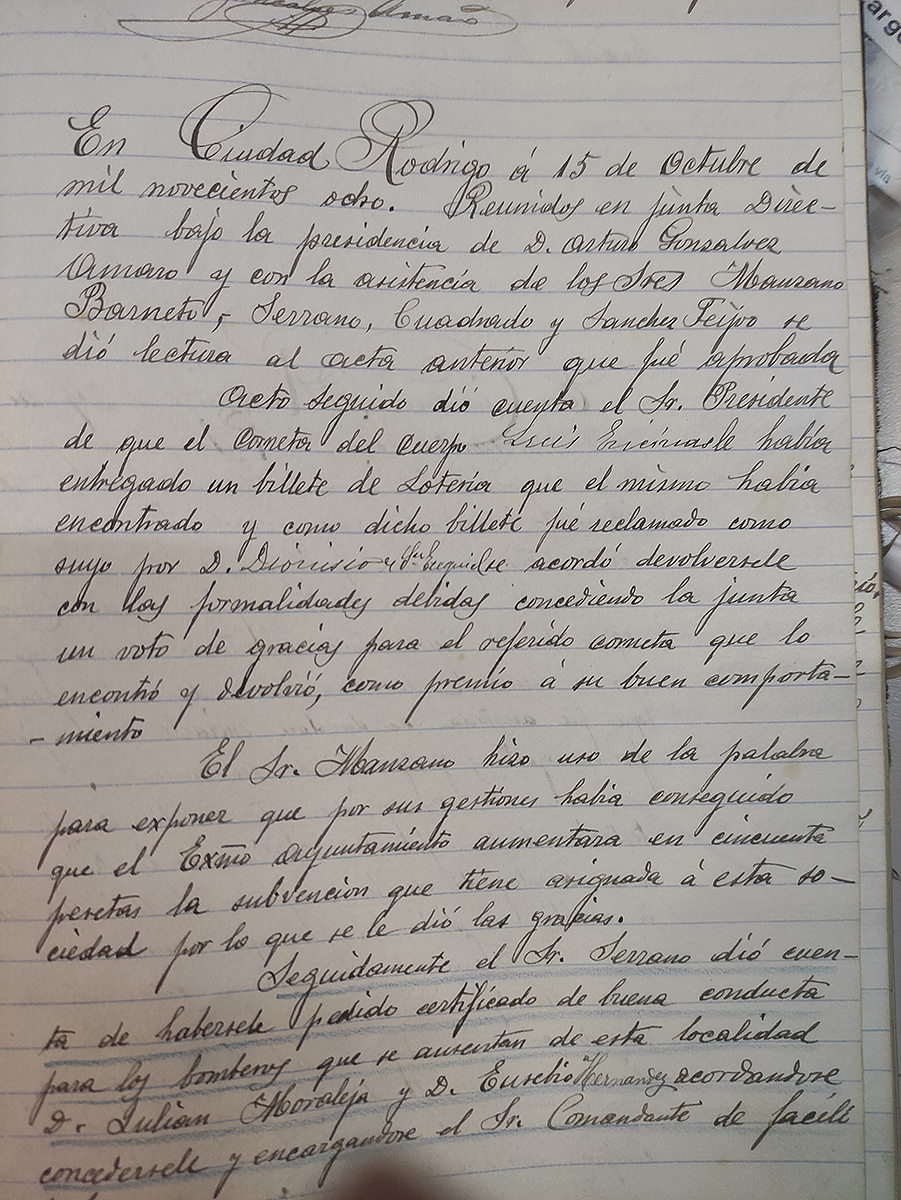 Amaro
En Ciudad Rodrigo á 15 de Octubre de
mil novecientos ocho. Reunidos en junta Direc-
tiva bajo la presidencia de D. Arturo Gonsalvez
Amaro y con la asistencia de los Sres Manzano
Barneto, Serrano, Cuadrado y Sanchez Feijoo se
dió lectura al acta anterior que fué aprobada
Acto seguido dió cuenta el Sr. Presidente
de que el corneta del cuerpo Luis habia
entregado un billete de Loteria que el mismo habia
encontrado y como dicho billete fué reclamado como
suyo por D. Dionisio se acordó devolversele
con las formalidades debidas concediendo la junta
un voto de gracias para el referido corneta que lo
encontró y devolvió, como premio á su buen comporta-
-miento
El Sr. Manzano hizo uso de la palabra
para exponer que por sus gestiones habia conseguido
que el Exmo Ayuntamiento aumentara en cincuenta
pesetas la subvencion que tiene asignada á esta so-
ciedad por lo que se le dió las gracias.
Seguidamente el Sr. Serrano dió cuen-
ta de habersele pedido certificado de buena conducta
para los bomberos que se ausentan de esta localidad
D. Julian Moraleja y D. Eusebio Hernandez acordandose
concedersele y encargandose el Sr. Comandante de facili